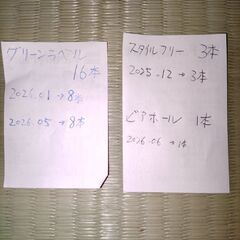 グリーンラベル
16本
2026.01→8本
2026.05→8本
スタイルフリー 3本
2025.12→3本
ビアホール 1本
2026.06→1本